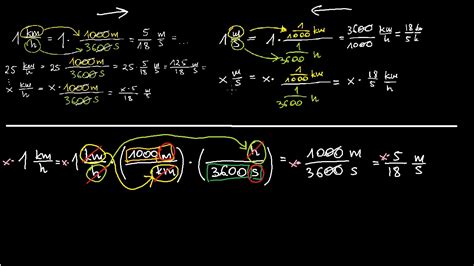 1 km/h = 1 · 1000m/3600s = 5/18 m/s = ...
25 km/h = 25 · 1000m/3600s = 25 · 5/18 m/s = 125/18 m/s = ...
x km/h = x · 1000m/3600s = x·5/18 m/s
1 m/s = 1 · 1/1000 km / 1/3600 h = 3600/1000 km/h = 18/5 km/h
x m/s = x · 1/1000 km / 1/3600 h = x · 18/5 km/h
x · 1 km/h = x · 1 km/h · (1000 m/km) · (h/3600 s) = x · 1000 m/3600 s = x·5/18 m/s